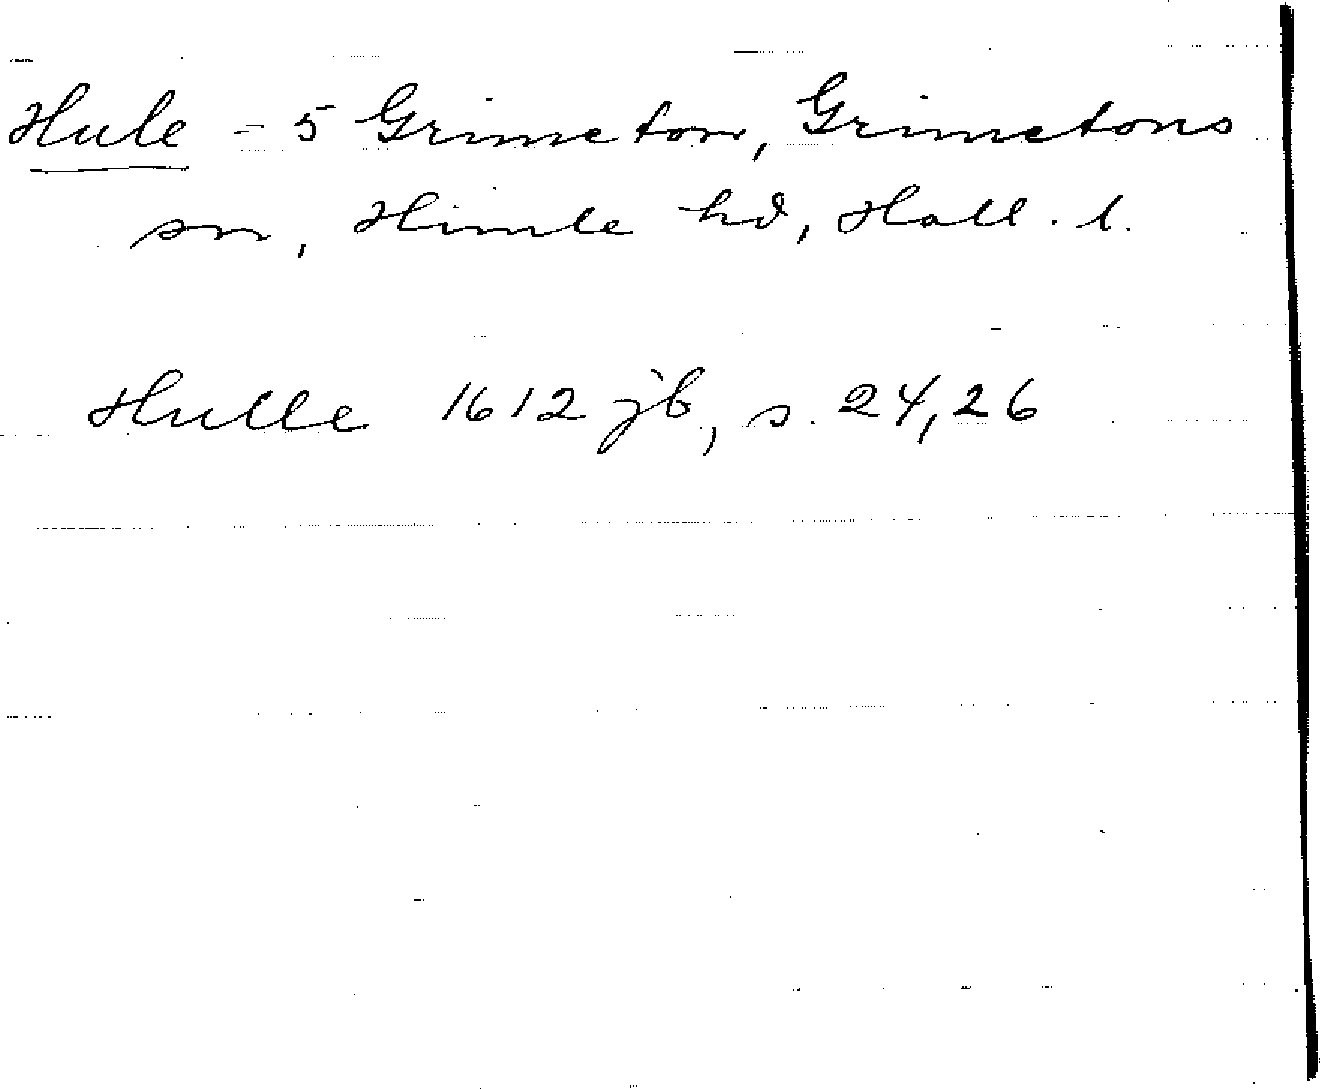 Hule = 5 Grimeton, Grimetons
sn, Himle hd, Hall. l.
Hulle 1612 jb, s. 24, 26